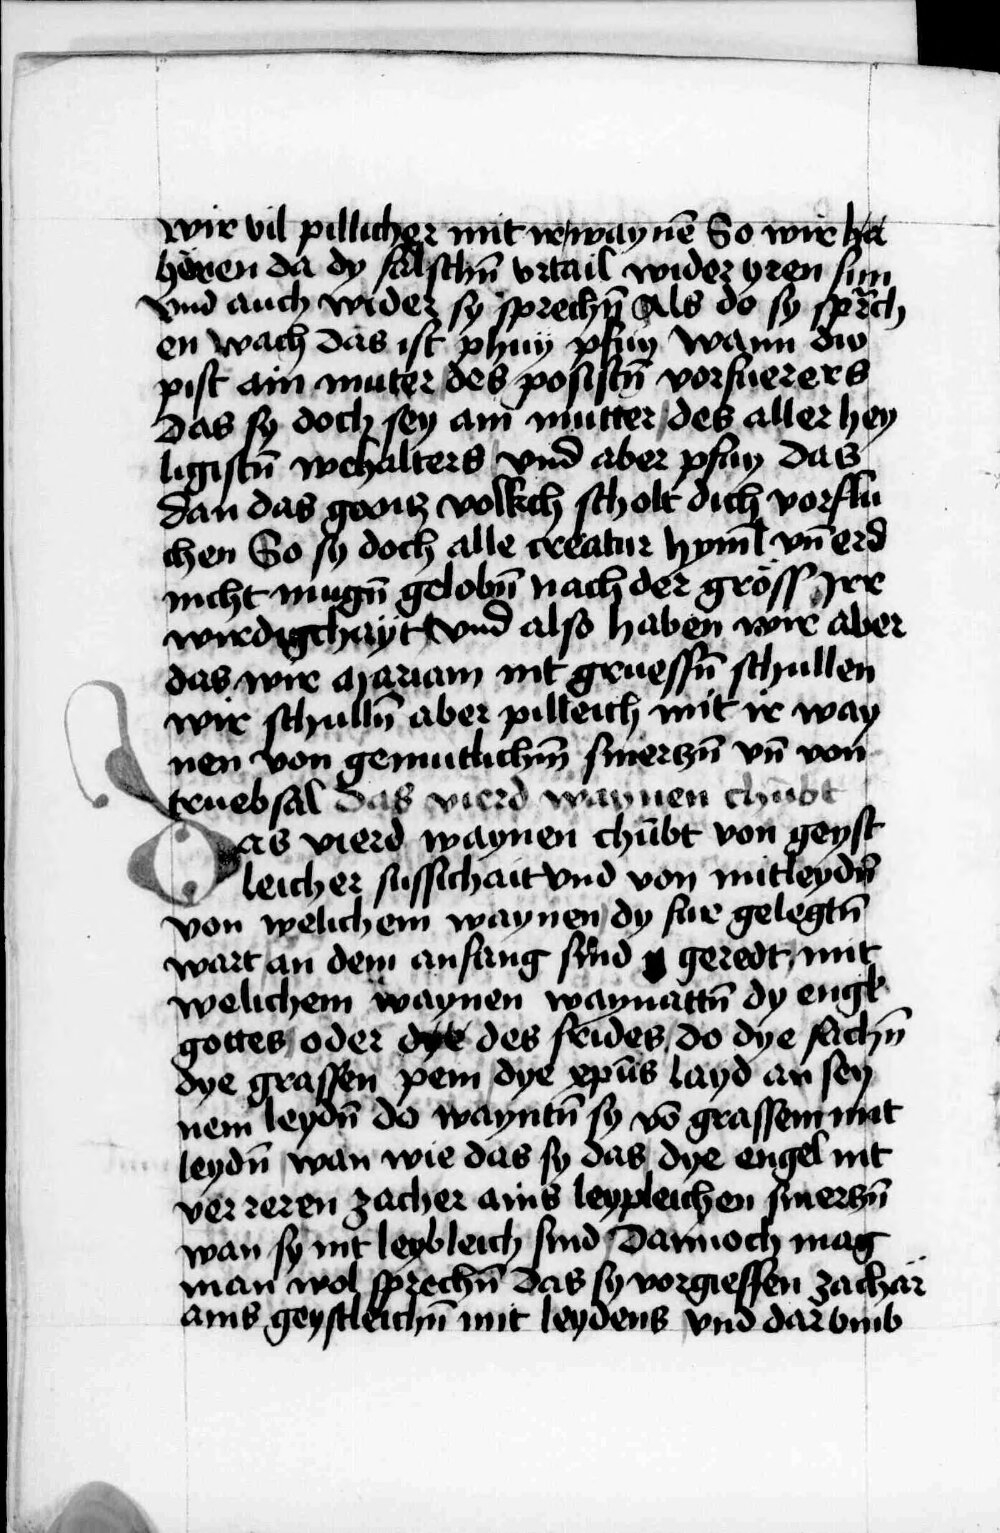 wir vil pillicher mit ir waynē So wir ha
hören da dy falschn̄ vrtail wider yren sun
vnd auch wider sy sprechn̄ Als do sy sprech
en wach das ist phuy pfuy wann du
pist ain muter des posistn̄ vorfuerers
Das sy doch sey ain mutter des aller hey
ligistn̄ wehalters vnd aber pfuy das
dan das volkch scholt dich vorflu
chen So sy doch alle creatur hyml̄ vn̄ erd
nicht mugn̄ gelobn̄ nach der gröss Irr
wirdigchayt vnd also haben wir aber
das wir Mariam nit gruessn̄ schullen
wir schulln̄ aber pilleich mit ir way
nen von gemutlichn̄ smerczn̄ vn̄ von
truebsal Das vierd waynen chūbt
Das vierd waynen chūbt von geyst
leicher sussichait vnd von mitleydn̄
von welichem waynen dy fur gelegtn̄
wart an dem anfang synd geredt mit
welichem waynen waynattn̄ dy engl
gottes oder dye des frides do dye sachn̄
dye grassen pein dye xpūs layd an sey
nem leydn̄ do wayntn̄ sy vō grassem mit
leydn̄ wan wie das sy das dye engel nit
ver reren zacher ains leypleichen smerczn̄
wan sy nit leybleich sind Dannoch mag
man wol sprechn̄ das sy vorgiessen zachär
ains geystleichn̄ mit leydens vnd darvmb